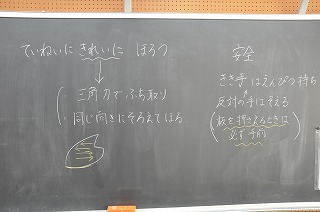 ていねいに きれいに ほろう
・三角刀でふち取り
・同じ向きにそろえてほる
安全
きき手はえんぴつ持ち
反対の手はそえる
(板を押さえるときは
必ず手前)